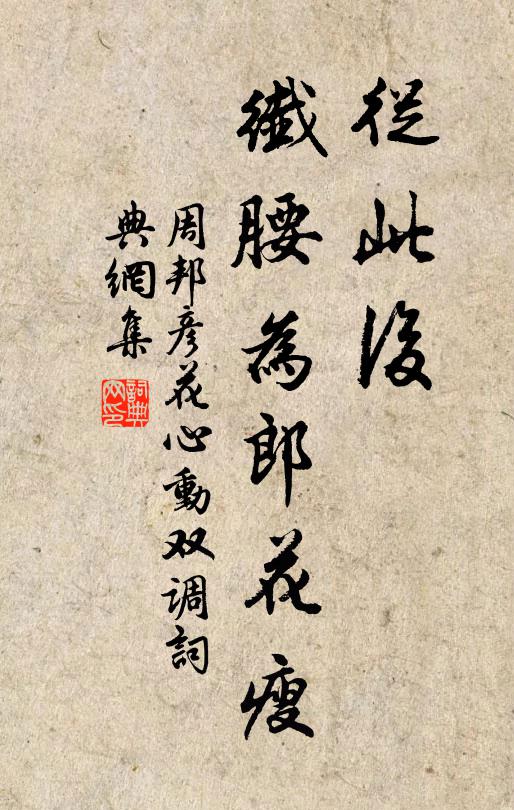 從此後
纖腰為郎花瘦
周邦彥花心動双调詞
典網集
詞典
网印